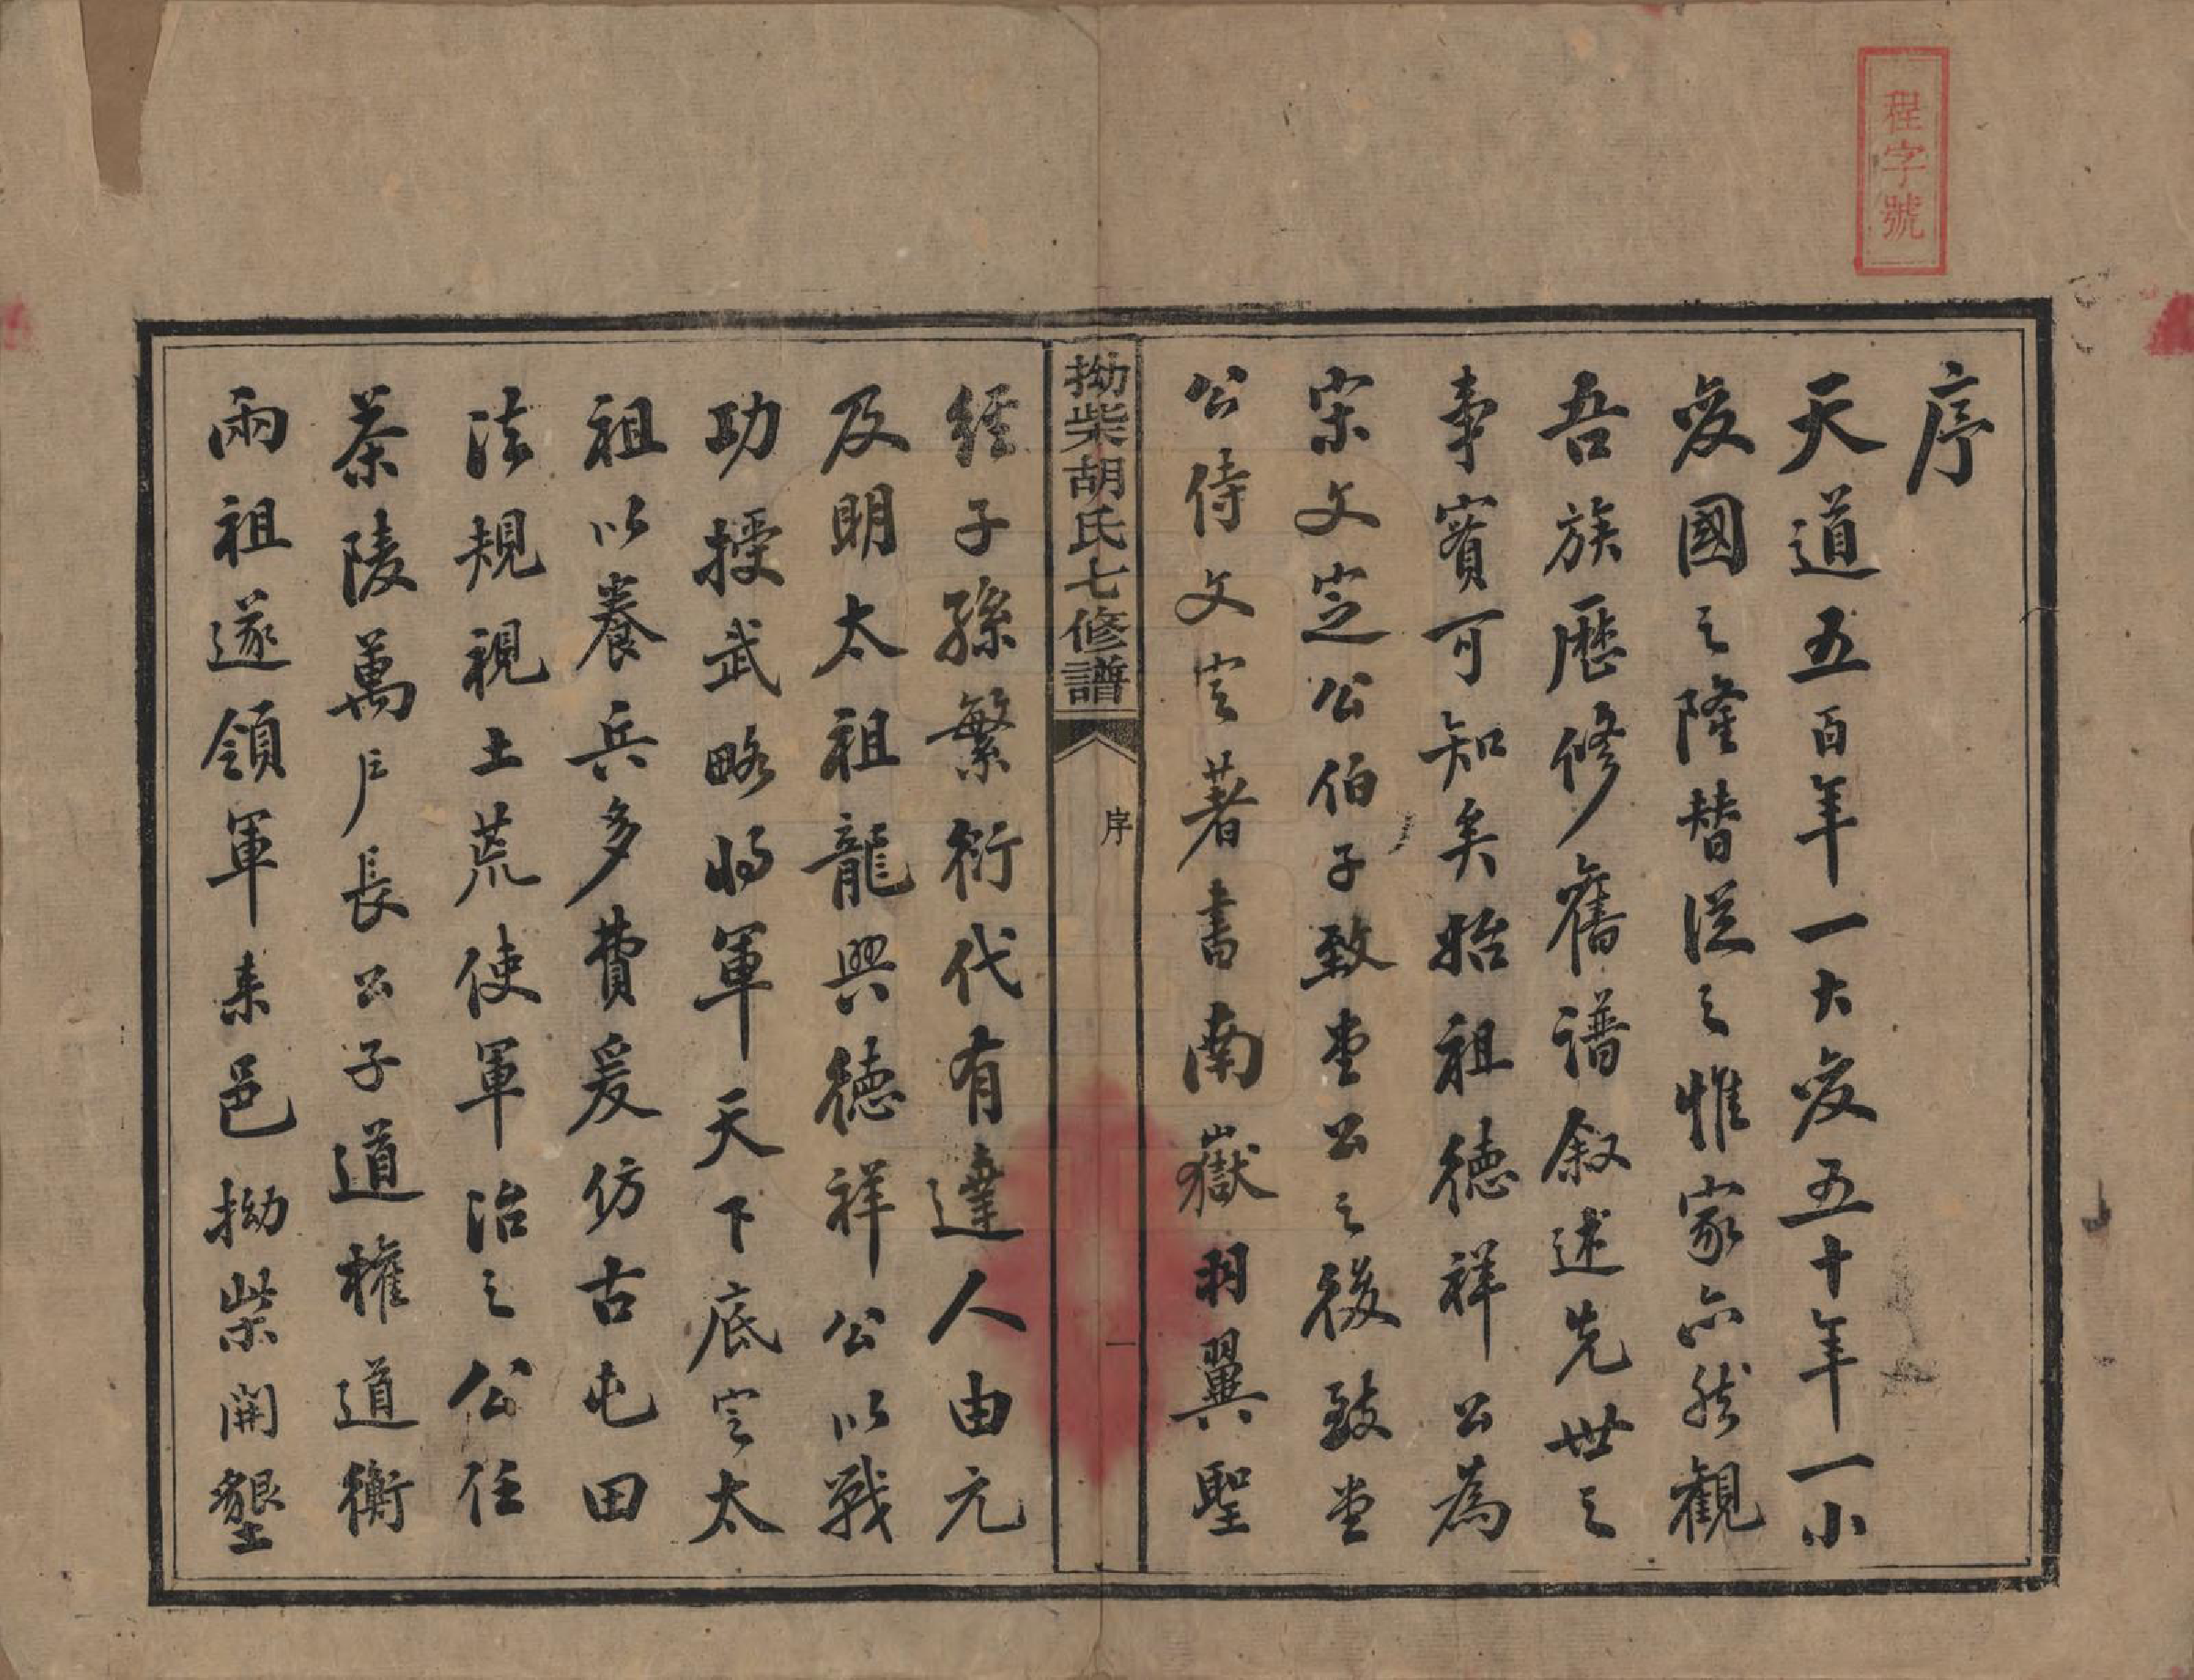 程字號
序
天道五百年一大变五十年一小
变國之隆替從之惟家亦然觀
吾族歷修舊譜叙述先世之
事實可知矣始祖德祥公為
宋文定公伯子致堂公之後致堂
公侍文定著書南嶽羽翼聖
拗柴胡氏七修譜
序
一
經子孫繁衍代有達人由元
及明太祖龍興德祥公以戰
功授武略将軍天下底定太
祖以養兵多費爰仿古屯田
法規視土荒使軍治之公任
茶陵萬户長公子道權道衡
兩祖遂領軍来邑拗柴開墾